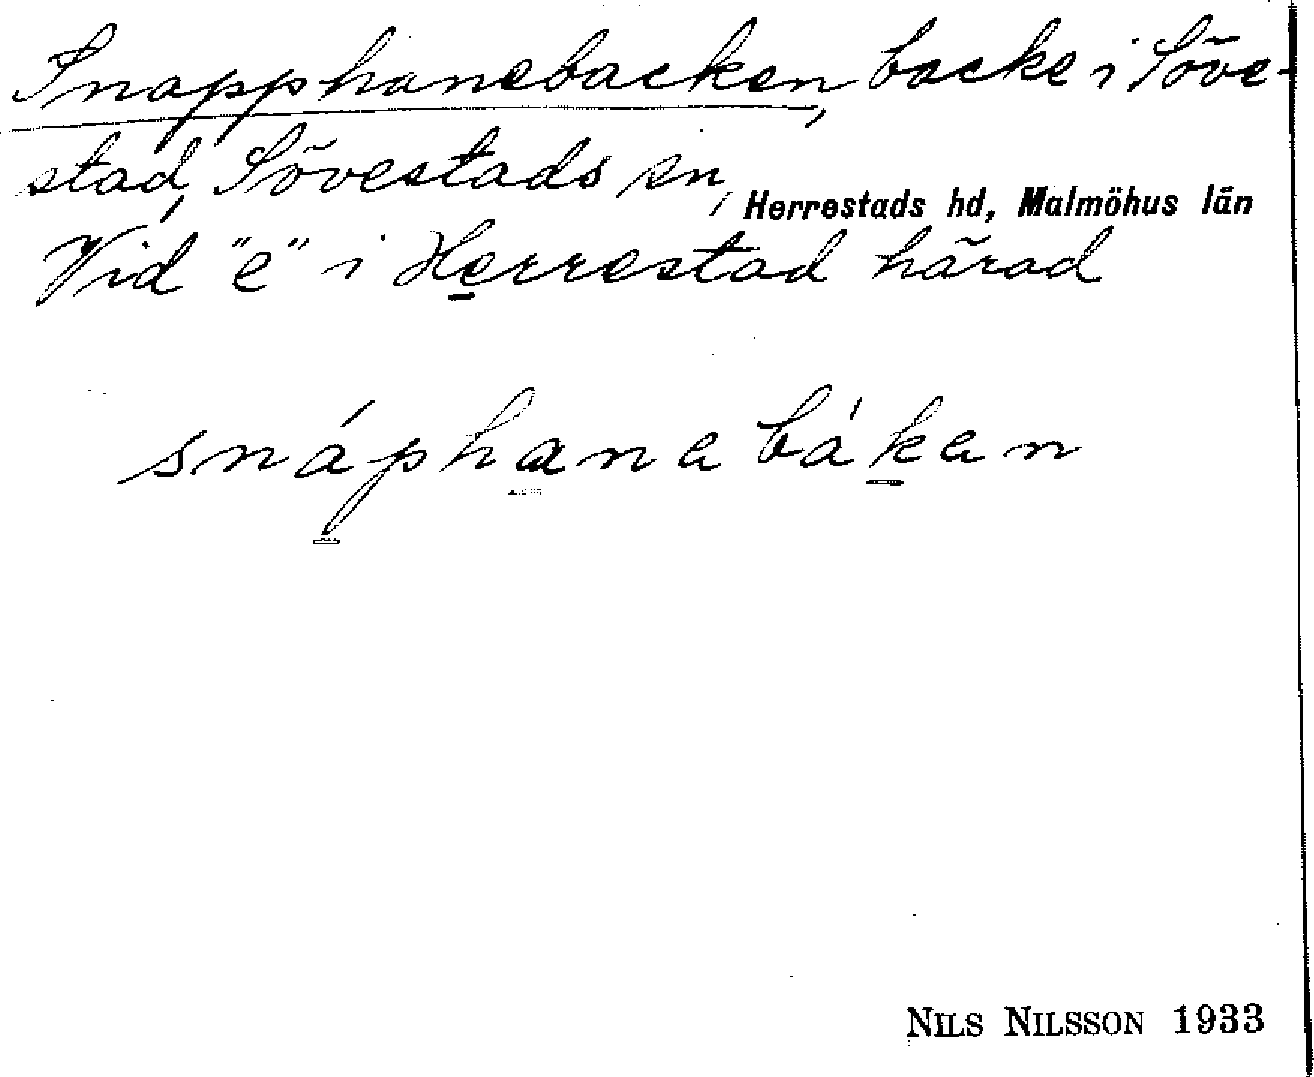 Snapphanebacken, backe i Söve-
stad, Sövestads sn, Herrestads hd, Malmöhus län
Vid "e" i Herrestad härad
snáphana bákan
NILS NILSSON 1933